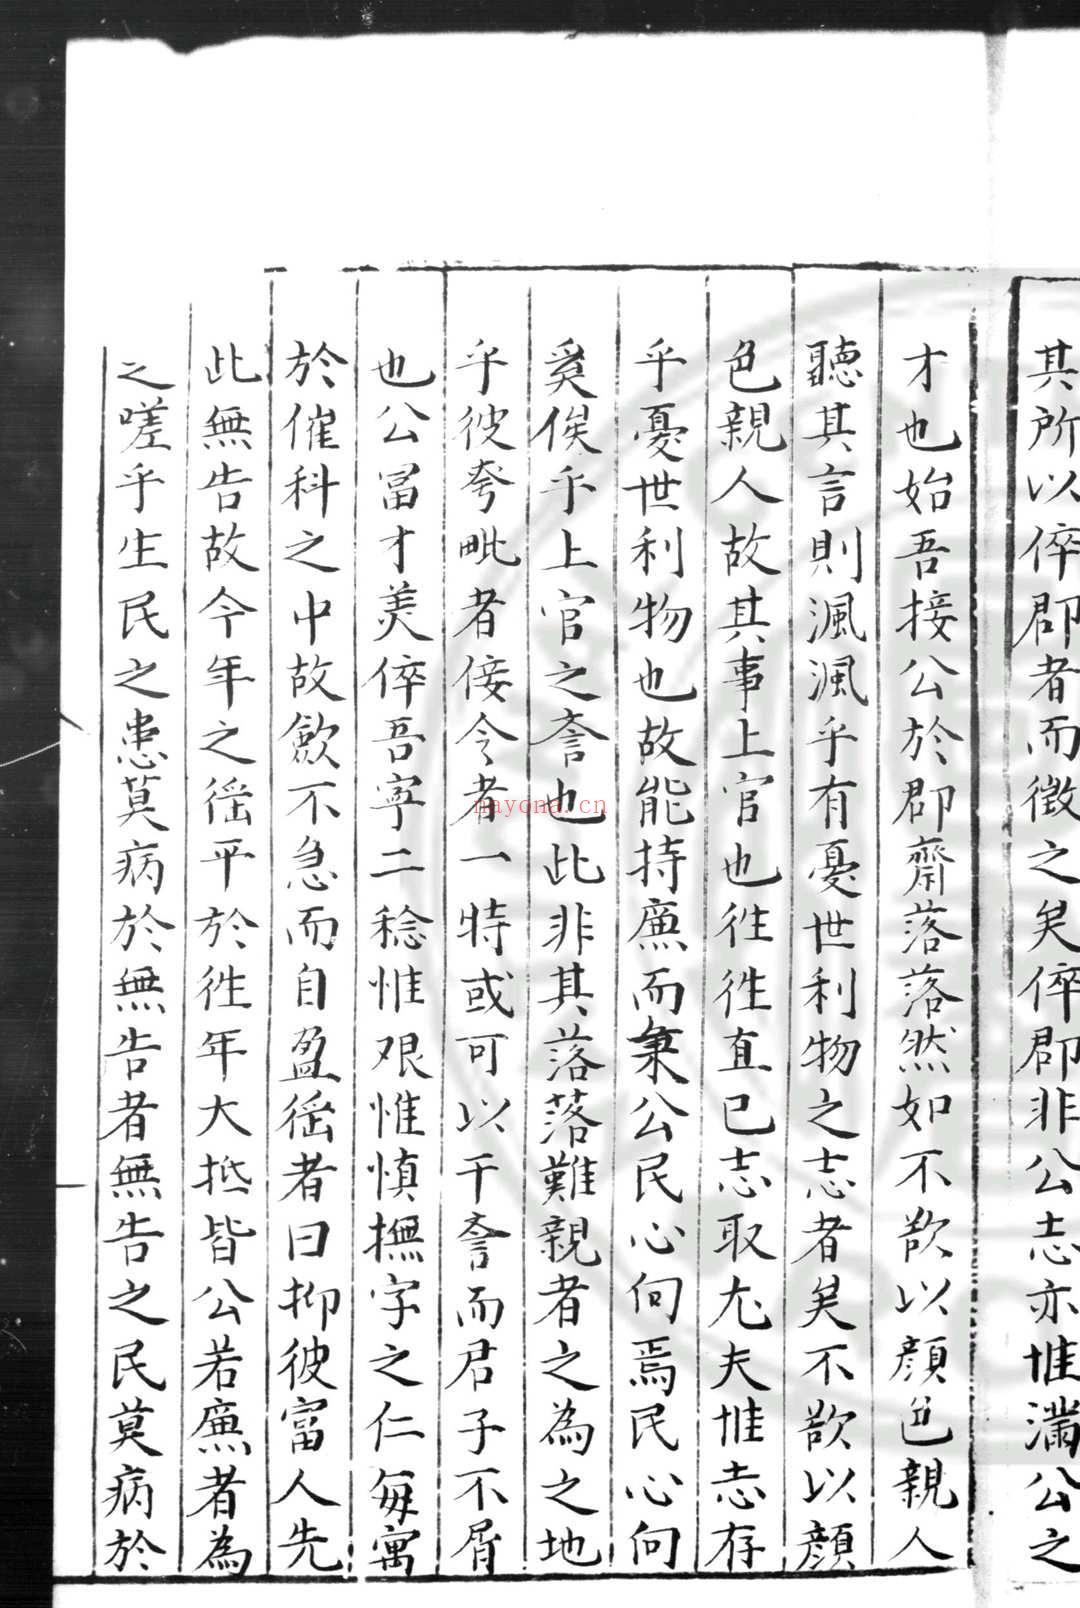 其所以倅郡者而徵之矣倅郡非公志亦惟滿公之
才也始吾接公於郡齋落落然如不欲以顔色親人
聽其言則渢渢乎有憂世利物之志者矣不欲以顔
色親人故其事上官也徃徃直已志取尤夫惟志存
乎憂世利物也故能持廉而秉公民心向焉民心向
奚俟乎上官之譽也此非其落落難親者之為之地
乎彼夸毗者倿令者一特或可以干譽而君子不屑
也公冨才美倅吾寧二稔惟艱惟慎撫字之仁每寓
於催科之中故歛不急而自盈徭者曰抑彼富人先
此無告故今年之徭平於徃年大抵皆公若廉者為
之嗟乎生民之患莫病於無告者無告之民莫病於
nayona.cn